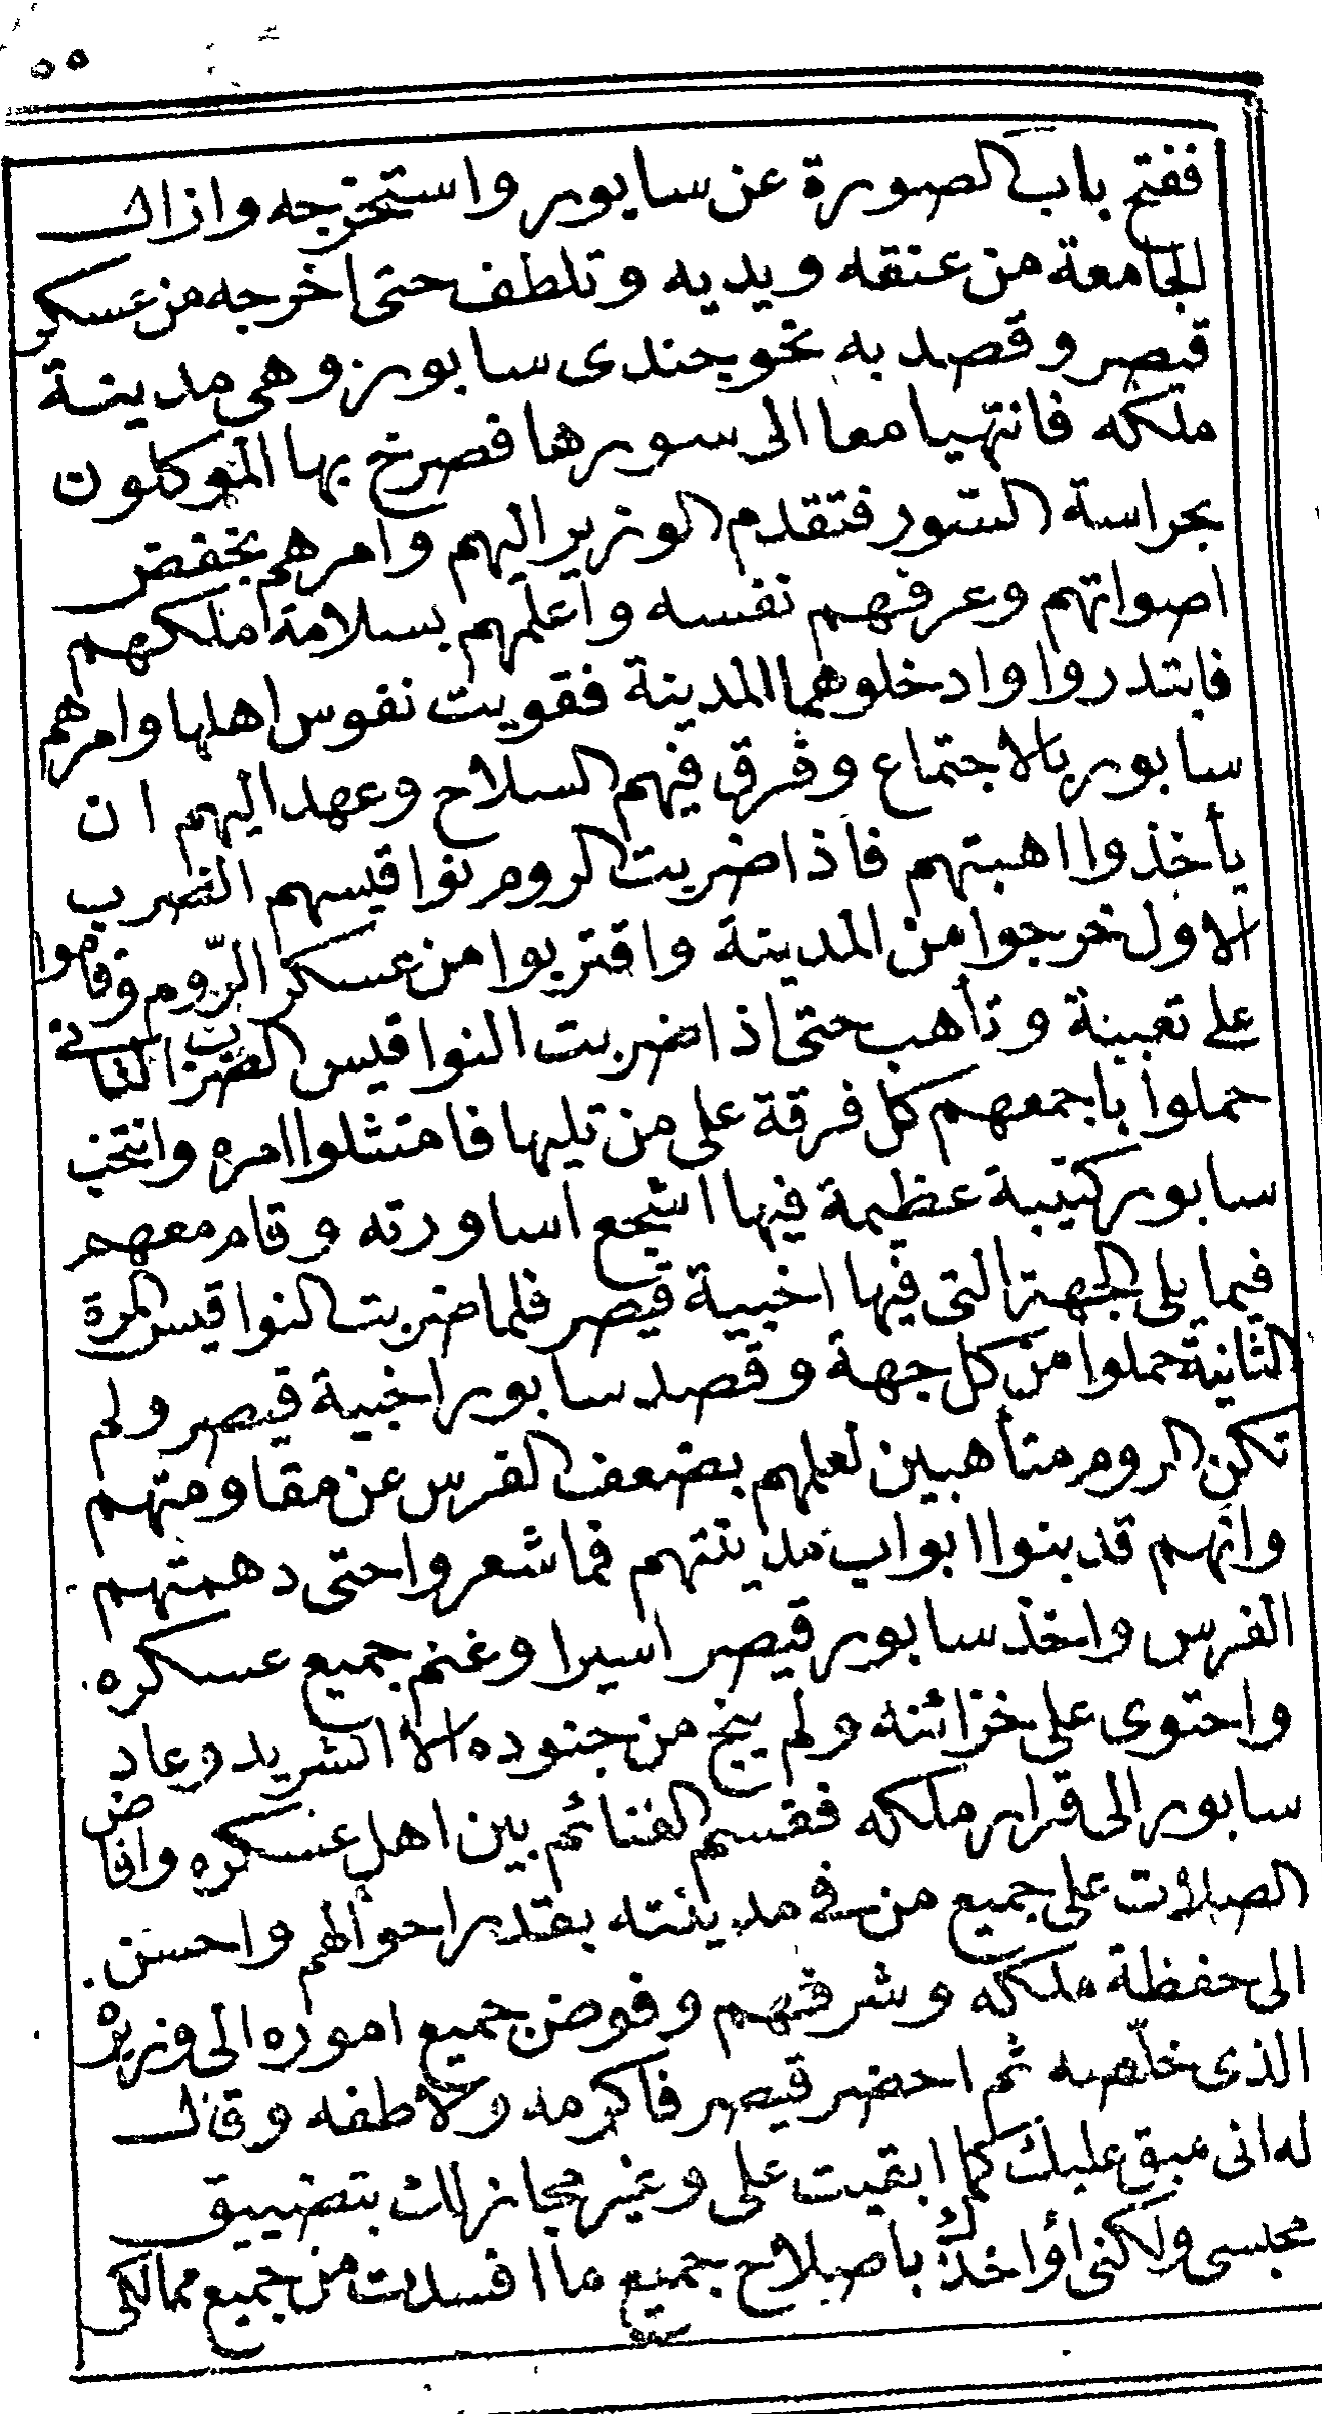 ٥٥
ففتح باب الصورة عن سابور واستخرجه وازال
الجامعة من عنقه ويديه وتلطف حتى اخرجه من عسكر
قيصر وقصد به نحو جندى سابور وهى مدينة
ملكه فانتهيا معا الى سورها فصرخ بها الموكلون
بحراسة السور فتقدم الوزير اليهم وامرهم بخفض
اصواتهم وعرفهم نفسه واعلمهم بسلامة ملكهم
فابتدروا وادخلوهما المدينة فقويت نفوس اهلها وامرهم
سابور بالاجتماع وفرق فيهم السلاح وعهد اليهم ان
يأخذوا اهبتهم فاذا ضربت الروم نواقيسهم الضرب
الاول خرجوا من المدينة واقتربوا من عسكر الرّوم وقاموا
على تعبية وتأهب حتى اذا ضربت النواقيس الضرب الثانى
حملوا باجمعهم كل فرقة على من تليها فامتثلوا امره وانتخب
سابور كتيبة عظيمة فيها اشجع اساورته وقام معهم
فيما يلى الجهة التى فيها اخبية قيصر فلما ضربت النواقيس المرة
الثانية حملوا من كل جهة وقصد سابور اخبية قيصر ولم
تكن الروم متأهبين لعلمهم بضعف الفرس عن مقاومتهم
وانهم قد بنوا ابواب مدينتهم فما شعروا حتى دهمتهم
الفرس واخذ سابور قيصر اسيرا وغنم جميع عسكره
واحتوى على خزائنه ولم ينج من جنوده الا الشريد وعاد
سابور الى قرار ملكه فقسم الغنائم بين اهل عسكره وافاض
الصلات على جميع من فى مدينته بقدر احوالهم واحسن
الى حفظة ملكه وشرفهم وفوض جميع اموره الى وزيره
الذى خلّصه ثم احضر قيصر فاكرمه ولاطفه وقال
له انى مبق عليك كما ابقيت على وغير مجازيك بتضييق
محبسى ولكنى أؤاخذك باصلاح جميع ما افسدت من جميع ممالكى